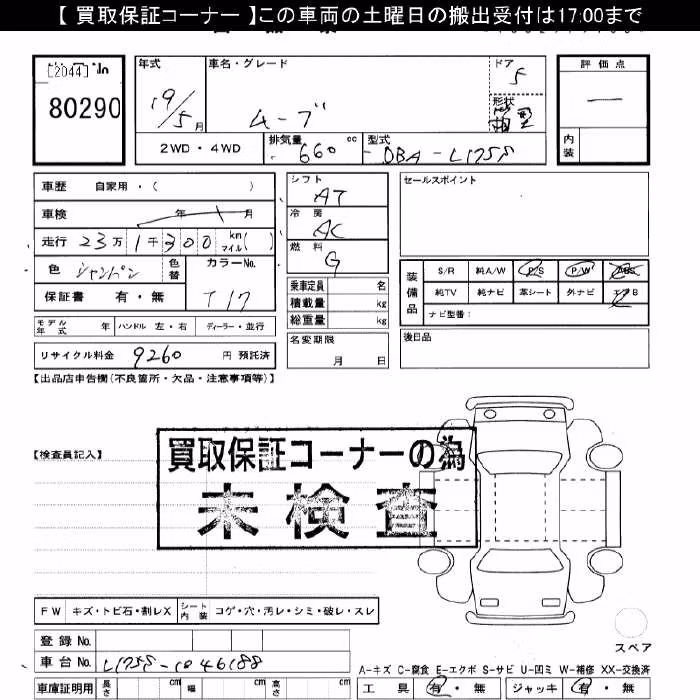 【 買取保証コーナー 】この車両の土曜日の搬出受付は17:00まで
[2044]
80290
年式 19/5 月
車名・グレード ムーブ
ドア 5
形状 箱型
評価点 ―
内装
2WD・4WD
排気量 660 cc
型式 DBA-L175S
車歴 自家用・( )
車検 年 月
走行 23万1千300 km マイル( )
色 シャンパン 色替
カラーNo. T17
保証書 有・無
モデル年式 年 ハンドル 左・右 ディーラー・並行
リサイクル料金 9260 円 預託済
シフト AT
冷房 AC
燃料 G
乗車定員 名
積載量 kg
総重量 kg
名変期限 月 日
セールスポイント
装備品
S/R 純A/W P/S P/W ABS
純TV 純ナビ 革シート 外ナビ エアB
ナビ型番:
後日品
【出品店申告欄(不良箇所・欠品・注意事項等)】
【検査員記入】
買取保証コーナーの為
未検査
FW キズ・トビ石・割レX シート内装 コゲ・穴・汚レ・シミ・破レ・スレ
スペア
登録 No.
車台 No. L175S-1046188
A-キズ C-腐食 E-エクボ S-サビ U-凹ミ W-補修 XX-交換済
車庫証明用 長さ cm 幅 cm 高さ cm
工具 有・無 ジャッキ 有・無